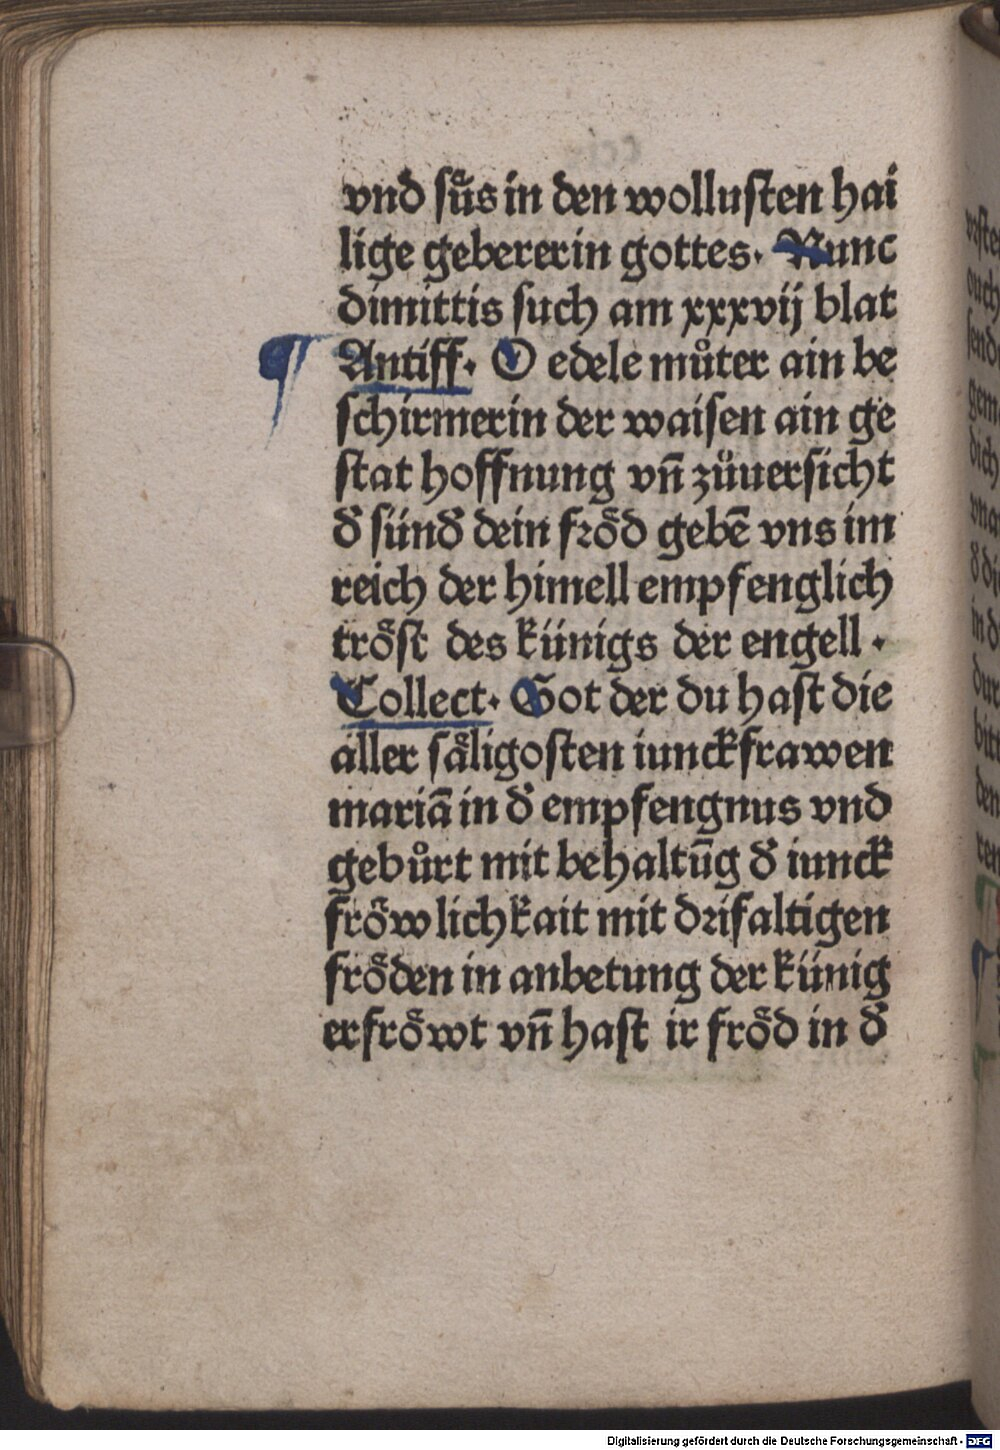 vnd suͤs in den wollusten hai
lige gebererin gottes. Nunc
dimittis such am xxxvij blat
¶ Antiff. O edele muͦter ain be
schirmerin der waisen ain ge
stat hoffnung vn̄ zuͦuersicht
đ sünđ dein froͤd gebē vns im
reich der himell empfenglich
troͤst des künigs der engell.
Collect. Got der du hast die
aller saͤligosten iunckfrawen
mariā in đ empfengnus vnd
gebuͦrt mit behaltūg đ iunck
froͤwlichkait mit drifaltigen
froͤden in anbetung der künig
erfroͤwt vn̄ hast ir froͤd in đ
Digitalisierung gefördert durch die Deutsche Forschungsgemeinschaft - DFG